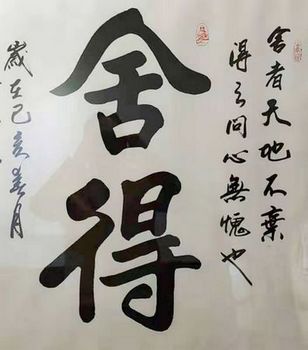 舍者天地不棄
得之問心無愧也
舍得
歲在己亥春月